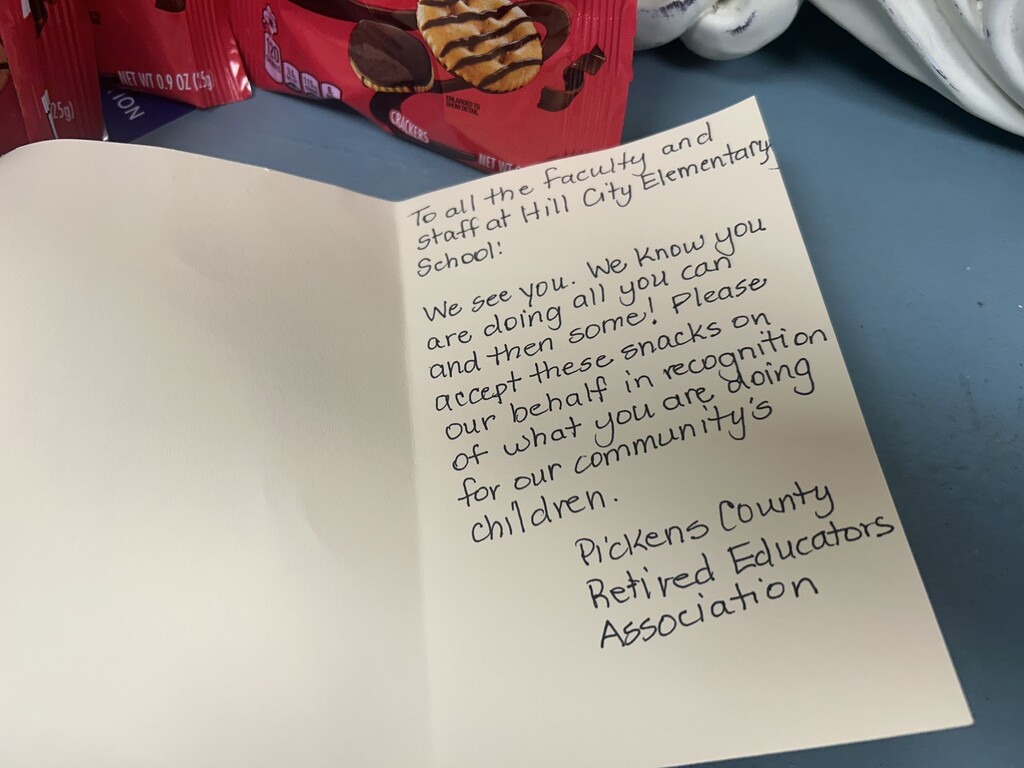 NET WT 0.9 OZ (25g)
(25g)
NOV
120
ENLARGED TO
SHOW DETAIL
CRACKERS
NET
To all the faculty and
staff at Hill City Elementary
School:
We see you. We know you
are doing all you can
and then some! Please
accept these snacks on
our behalf in recognition
of what you are doing
for our community's
children.
Pickens County
Retired Educators
Association